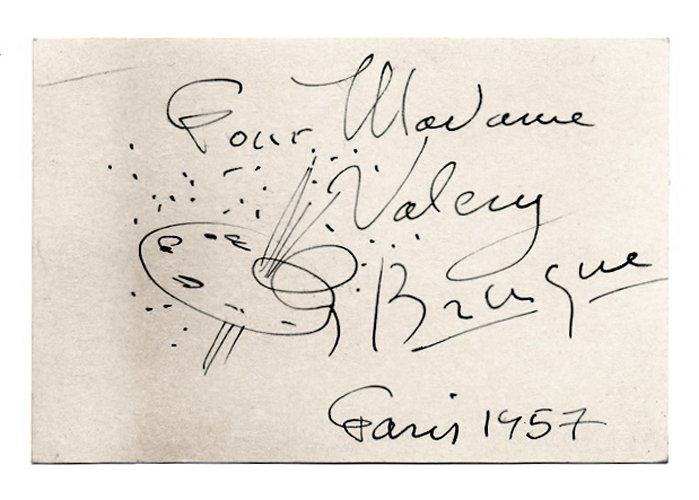 Pour Madame
Valery
G Braque
Paris 1957